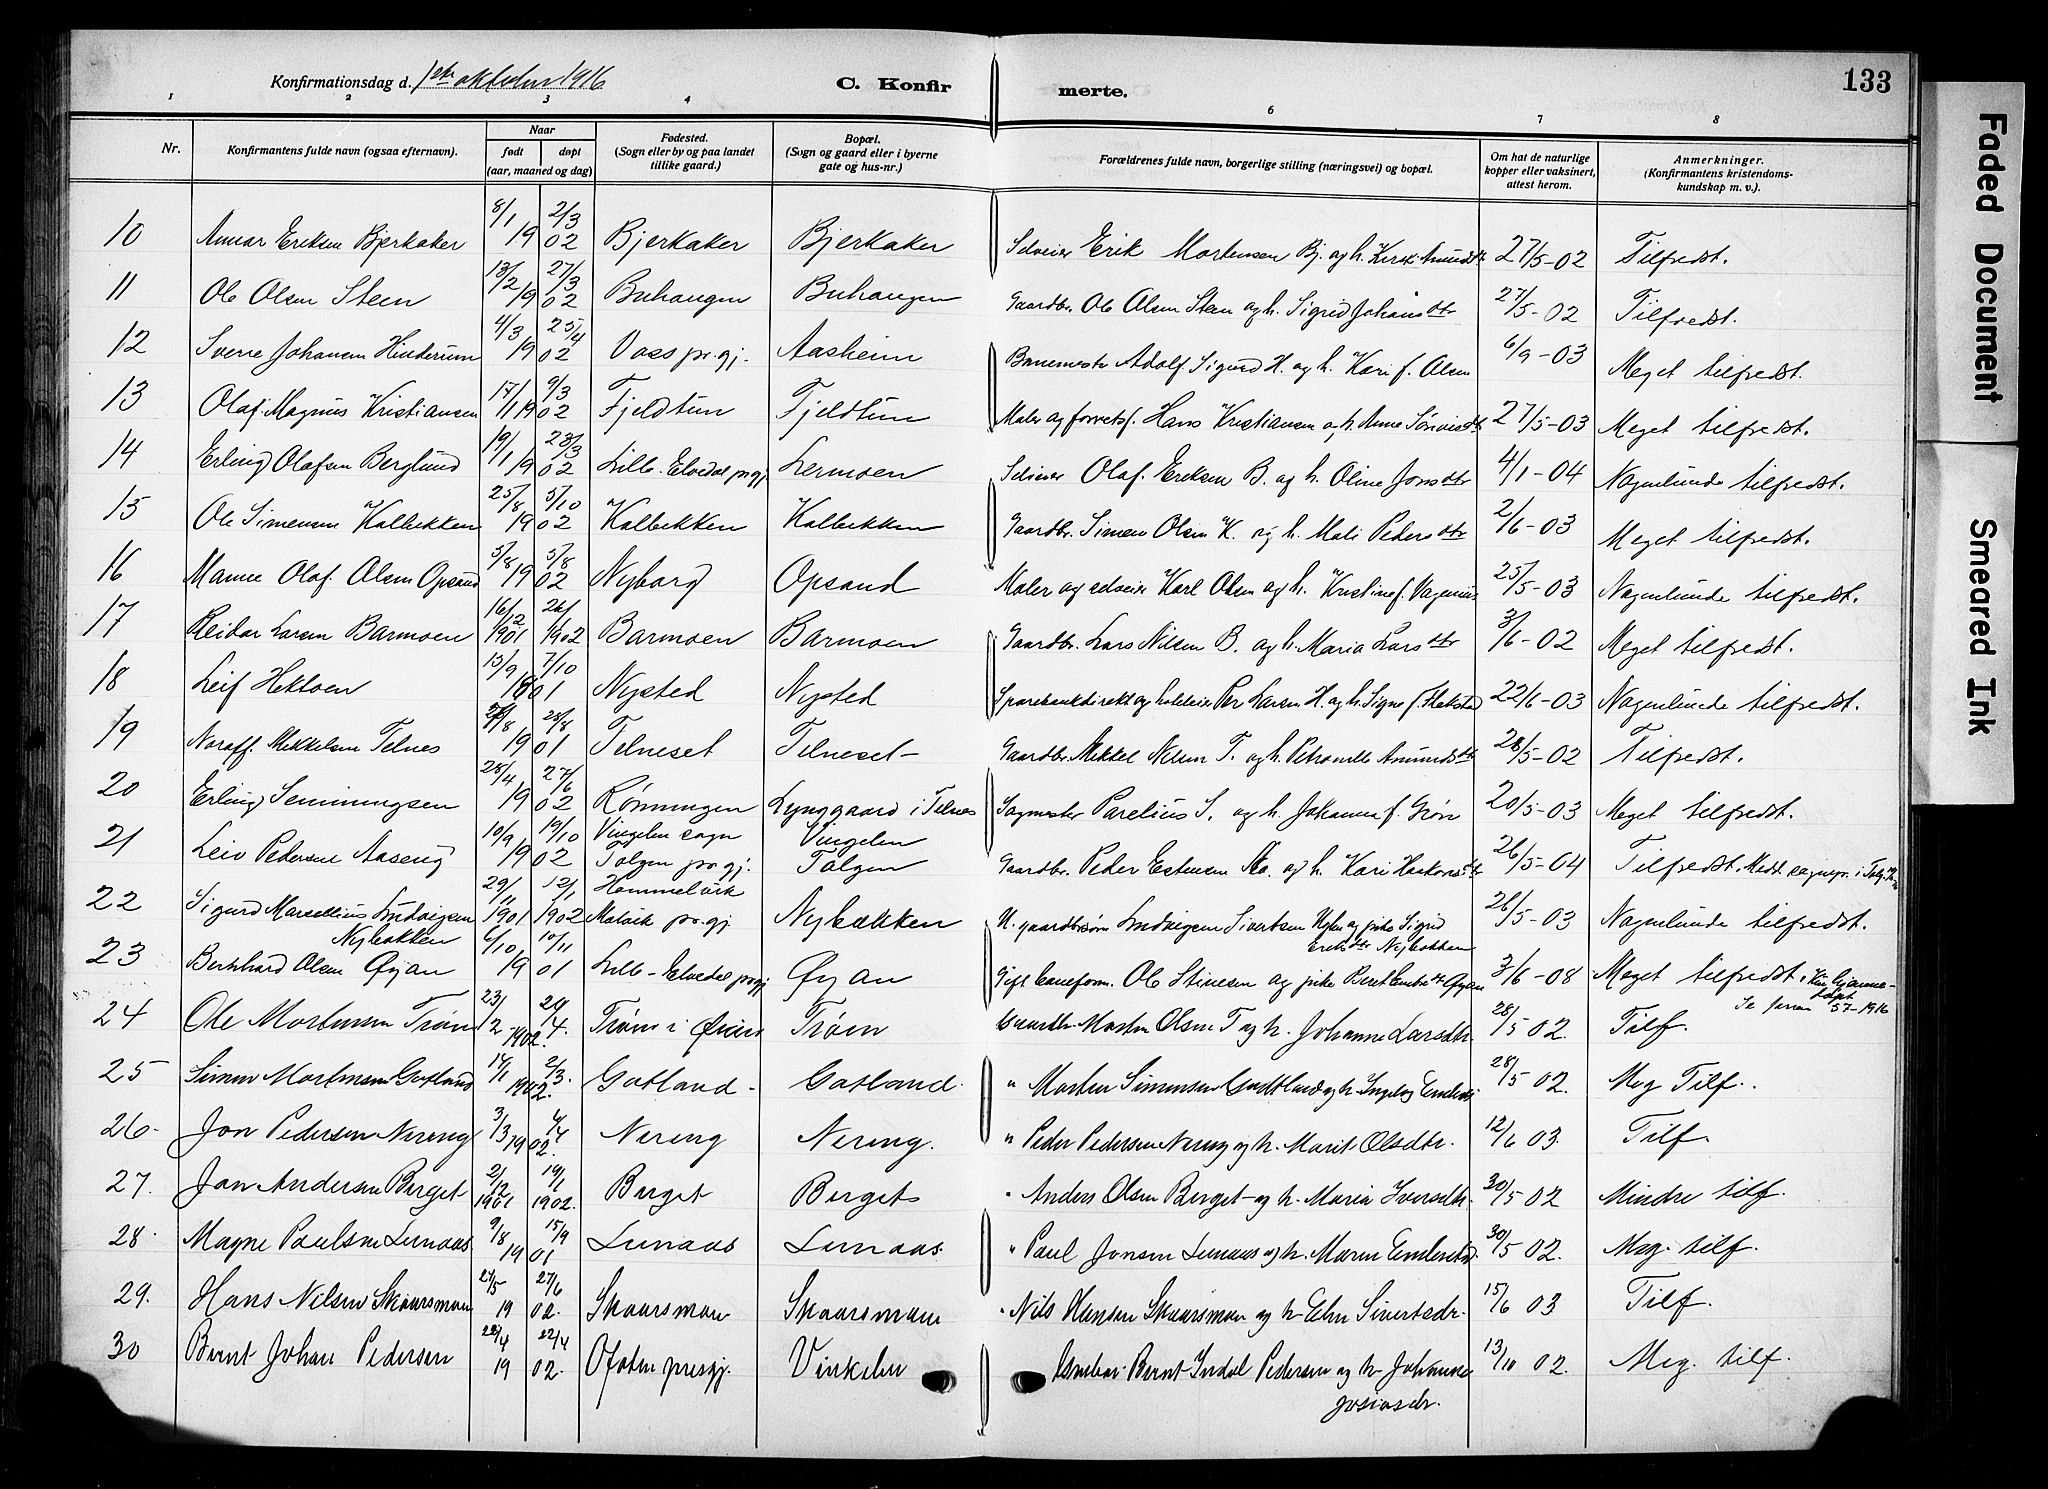 Konfirmationsdag d. 1ste oktober 1916
C. Konfirmerte.
133
1 2 3 4 5 6 7 8
Nr.
Konfirmantens fulde navn (ogsaa efternavn).
Naar
født døpt
(aar, maaned og dag)
Fødested.
(Sogn eller by og paa landet
tillike gaard.)
Bopæl.
(Sogn og gaard eller i byerne
gate og hus-nr.)
Forældrenes fulde navn, borgerlige stilling (næringsvei) og bopæl.
Om hat de naturlige
kopper eller vaksinert,
attest herom.
Anmerkninger.
(Konfirmantens kristendoms-
kundskap m. v.).
10 Eriksen Bjerkaker 8/1 2/3 19 02 Bjerkaker Bjerkaker Selveier Erik Mortensen Bj. og h. 27/5-02 Tilfredst.
11 Ole Olsen Steen 13/2 27/3 19 02 Buhaugen Buhaugen Gaardbr. Ole Olsen Steen og h. Sigrid Johansdtr 27/5-02 Tilfredst.
12 Sverre Johansen Hinderum 4/3 25/4 19 02 Voss pr.gj. Aasheim Banemester Adolf Sigurd H. og h. Kari f. Olsen 6/9-03 Meget tilfredst.
13 Olaf Magnus Kristiansen 17/1 9/3 19 02 Fjeldtun Fjeldtun Maler og Hans Kristiansen og h. Anne 27/5-03 Meget tilfredst.
14 Erling Olafsen Berglund 19/1 23/3 19 02 Lille-Elvedal pr.gj. Lermoen Selveier Olaf Eriksen B. og h. Oline Jonsdtr 4/1-04 Nogenlunde tilfredst.
15 Ole Simensen Kalbekken 25/8 5/10 19 02 Kalbekken Kalbekken Gaardbr. Simen Olsen K. og h. Mali Pedersdtr 2/6-03 Meget tilfredst.
16 Olaf Olsen Opsand 5/8 19 02 Nyborg Opsand Maler og selveier Karl Olsen og h. Kristine f. 25/5-03 Nogenlunde tilfredst.
17 Reidar Larsen Barmoen 16/12 1901 26/1 1902 Barmoen Barmoen Gaardbr. Lars Nilsen B. og h. Maria Larsdtr 3/6-02 Meget tilfredst.
18 Leif Hektoen 15/9 7/10 19 01 Nysted Nysted Sparebankdirekt og hoteleier Per Larsen H. og h. Signe f. 22/6-03 Nogenlunde tilfredst.
19 Mikkelsen Telnes 28/8 19 01 Telneset Telneset Gaardbr. Mikkel Nilsen T. og h. Petronelle Amundsdtr 28/5-02 Tilfredst.
20 Erling Semmingsen 28/4 27/6 19 02 Rønningen Lynggaard i Telnes Sagmester Parelius S. og h. Johanna f. Grøn 20/5-03 Meget tilfredst.
21 Leiv Pedersen Aaseng 10/9 19/10 19 02 Vingelen sogn Tolgen pr.gj. Vingelen Tolgen Gaardbr. Peder Estensen Aa. og h. Kari Haakonsdtr 26/5-04 Tilfredst.
22 Sigurd Marsellius Ludvigsen Nybakken 29/11 1901 12/1 1902 Hommelvik Malvik pr.gj Nybækken U. gaardbrsøn Ludvig Sivertsen og pike Sigrid Eriksdtr Nybakken 26/5-03 Nogenlunde tilfredst.
23 Bernhard Olsen Øyan 6/10 10/11 19 01 Lille-Elvedal pr.gj Øyan Gift baneform. Ole Stinesen og pike Beret Øyan 3/6-08 Meget tilfredst. Kun hjemmedøpt
57-1916
24 Ole Mortensen Trøen 23/2 20/4 1902. Trøen i Trøen Gaardbr. Morten Olsen T og h. Johanne Larsdtr. 28/5 02. Tilf.
25 Simen Mortensen Gotland 14/1 2/3. 1902. Gotland Gotland. " Morten Simensen Gotland og h. Ingeborg 28/5 02. Meg Tilf.
26 Jon Pedersen Nereng 3/3 4/4 1902. Nereng Nereng. " Peder Pedersen Nereng og h. Marit Olsdtr. 12/6 03. Tilf.
27. Jon Andersen Berget 2/12 1901 19/1 1902. Berget Berget " Anders Olsen Berget og h. Maria Iversdtr 30/5 02 Mindre tilf.
28. Magne Paulsen Lunaas 9/8 15/9 19 01 Lunaas Lunaas " Paul Jonsen Lunaas og h. Maren 30/5 02. Meg. tilf.
29. Hans Nilsen Skaarsmoen 27/5 27/6 19 02. Skaarsmoen Skaarsmoen " Nils Hansen Skaarsmoen og h. Elen Sivertsdr. 15/6 03 Tilf.
30 Bernt Johan Pedersen 22/4 22/4 19 02. Ofoten presgj. Vinkelen Bernt Indal Pedersen og h. Johanna Josiasdr. 13/10 02. Meg. tilf.
Faded Document
Smeared Ink